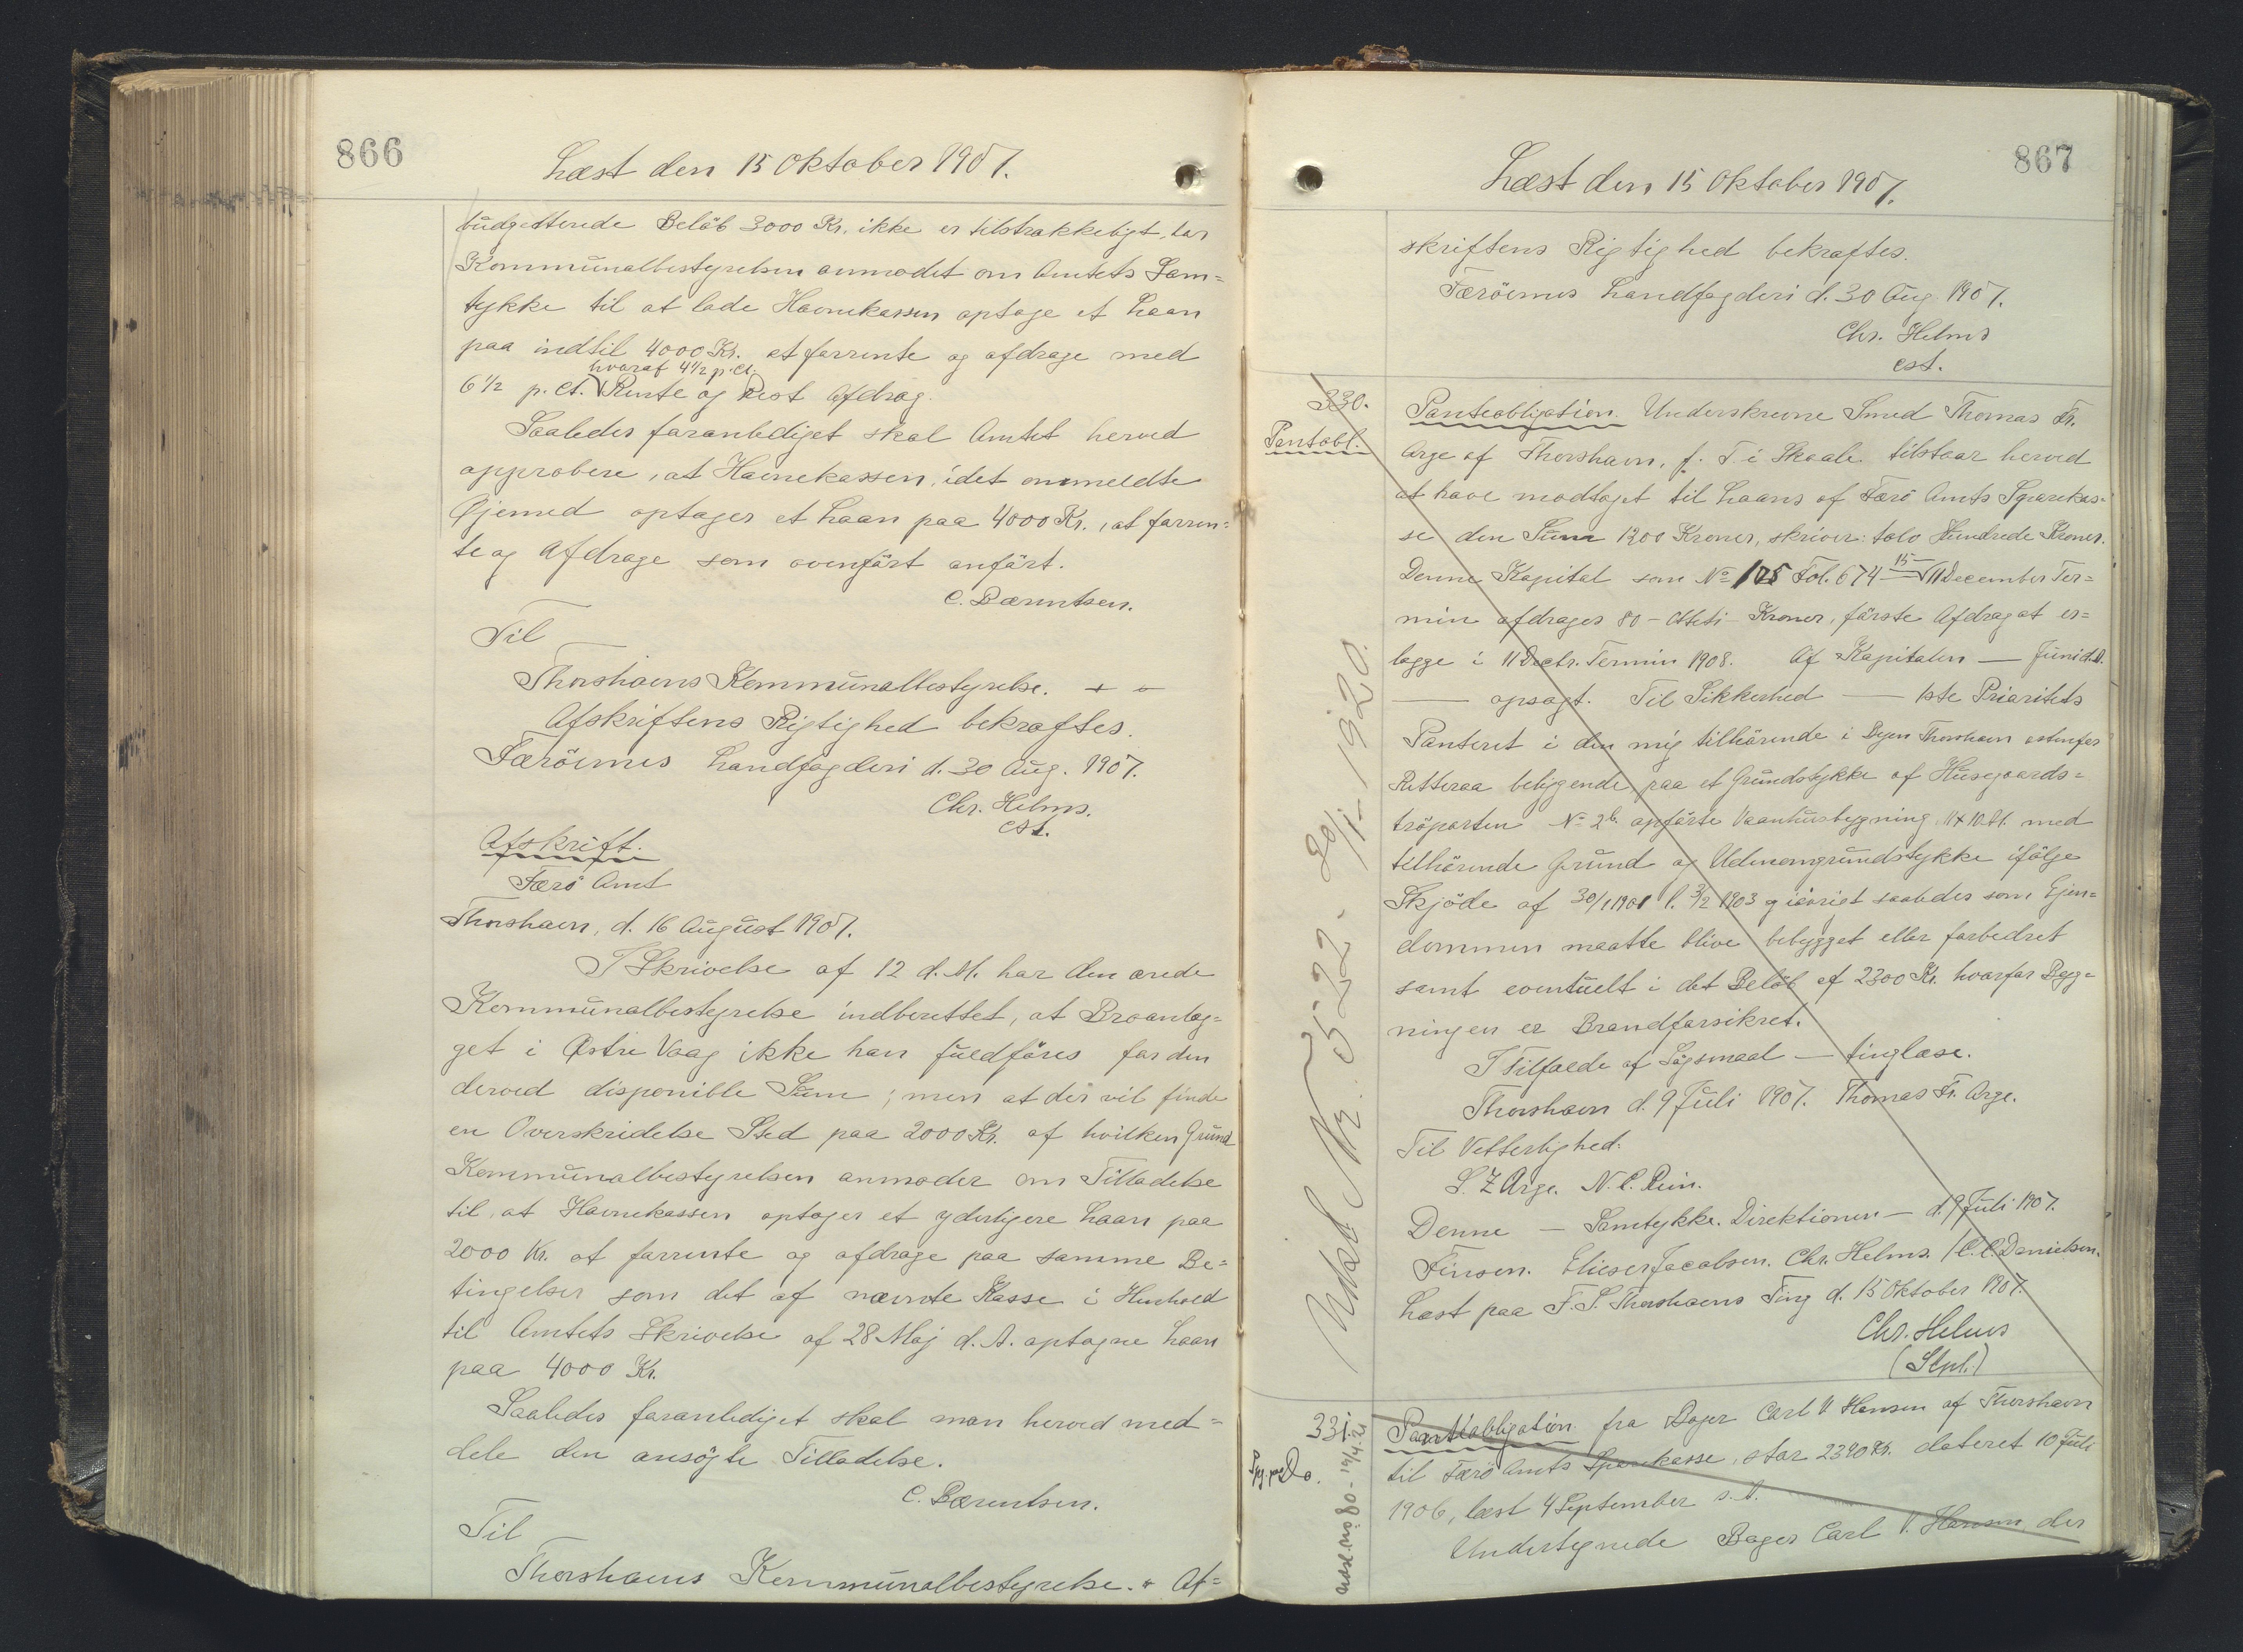 866
Læst den 15 Oktober 1907.
budgetterede Beløb 3000 Kr. ikke er tilstrækkeligt, har
Kommunalbestyrelsen anmodet om Amtets Sam=
tykke til at lade Havnekassen optage et Laan
paa indtil 4000 Kr. at forrente og afdrage med
hvoraf 4½ p. Ct.
6½ p. Ct. Rente og Rest Afdrag.
Saaledes foranlediget skal Amtet herved
approbere, at Havnekassen, i det ommeldte
Øjemed optager et Laan paa 4000 Kr., at forren=
te og Afdrage som ovenført anført.
C. Bærentsen.
Til
Thorshavns Kommunalbestyrelse.
Afskriftens Rigtighed bekræftes.
Færöernes Landfogderi d. 30 Aug. 1907.
Chr. Helms.
cst.
Afskrift.
Færö Amt
Thorshavn, d. 16 August 1907.
I Skrivelse af 12 d. M. har den ærede
Kommunalbestyrelse indberettet, at Broanlæg=
get i Østre Vaag ikke kan fuldføres for den
derved disponible Sum; men at der vil finde
en Overskridelse Sted paa 2000 Kr. af hvilken Grund
Kommunalbestyrelsen anmoder om Tilladelse
til, at Havnekassen optager et yderligere Laan paa
2000 Kr. at forrente og afdrage paa samme Be=
tingelser som det af nævnte Kasse i Henhold
til Amtets Skrivelse af 28 Maj d. A. optagne Laan
paa 4000 Kr.
Saaledes foranlediget skal man herved med=
dele den ansøgte Tilladelse.
C. Bærentsen.
Til
Thorshavns Kommunalbestyrelse. Af=
867
Læst den 15 Oktober 1907.
skriftens Rigtighed bekræftes.
Færöernes Landfogderi d. 30 Aug 1907.
Chr. Helms
cst.
330.
Pantobl.
Panteobligation. Underskrevne Smed Thomas Fr.
Arge af Thorshavn, f. T. i Skaale tilstaar herved
at have modtaget til Laans af Færö Amts Sparekas=
se den Sum 1200 Kroner, skriver: tolv Hundrede Kroner.
Denne Kapital som No 175 Fol. 674 — 15 11 December Ter=
min afdrages 80 - Otteti - Kroner, første Afdrag at er=
lægge i 11 Decbr. Termin 1908. Af Kapitalen — Juni d. A.
— opsagt. Til Sikkerhed — 1ste Prioritets
Panteret i den mig tilhørende i Byen Thorshavn østenfor
Retteraa beliggende paa et Grundstykke af Husegaards=
tröparten No 2b opførte Vaanhusbygning 11 x 10 Al. med
tilhørende Grund og Udmarksgrundstykke ifølge
Skjøde af 30/1 1901 l. 3/2 1903 og iøvrigt saaledes som Ejen=
dommen maatte blive bebygget eller forbedret
samt eventuelt i det Beløb af 2300 Kr. hvorfor Byg=
ningen er Brandforsikret.
I Tilfælde af Søgsmaal — tinglæse.
Thorshavn d. 9 Juli 1907. Thomas Fr. Arge.
Til Vitterlighed:
S. Z Arge. N. C. Rein.
Denne — Samtykke. Direktionen — d. 9 Juli 1907.
Finsen. Elieser Jacobsen. Chr. Helms. / C. C. Danielsen.
Læst paa F. S. Thorshavns Ting d. 15 Oktober 1907.
Chr. Helms
(Stpl.)
Udsl. Nr. 522 - 20/1 - 1920.
331.
Do.
Udsl. No 80 - 14/4.21
Panteobligation fra Bager Carl V. Hansen af Thorshavn
til Færö Amts Sparekasse, stor 2390 Kr. dateret 10 Juli
1906, læst 4 September s. A.
Undertegnede Bager Carl V. Hansen, der